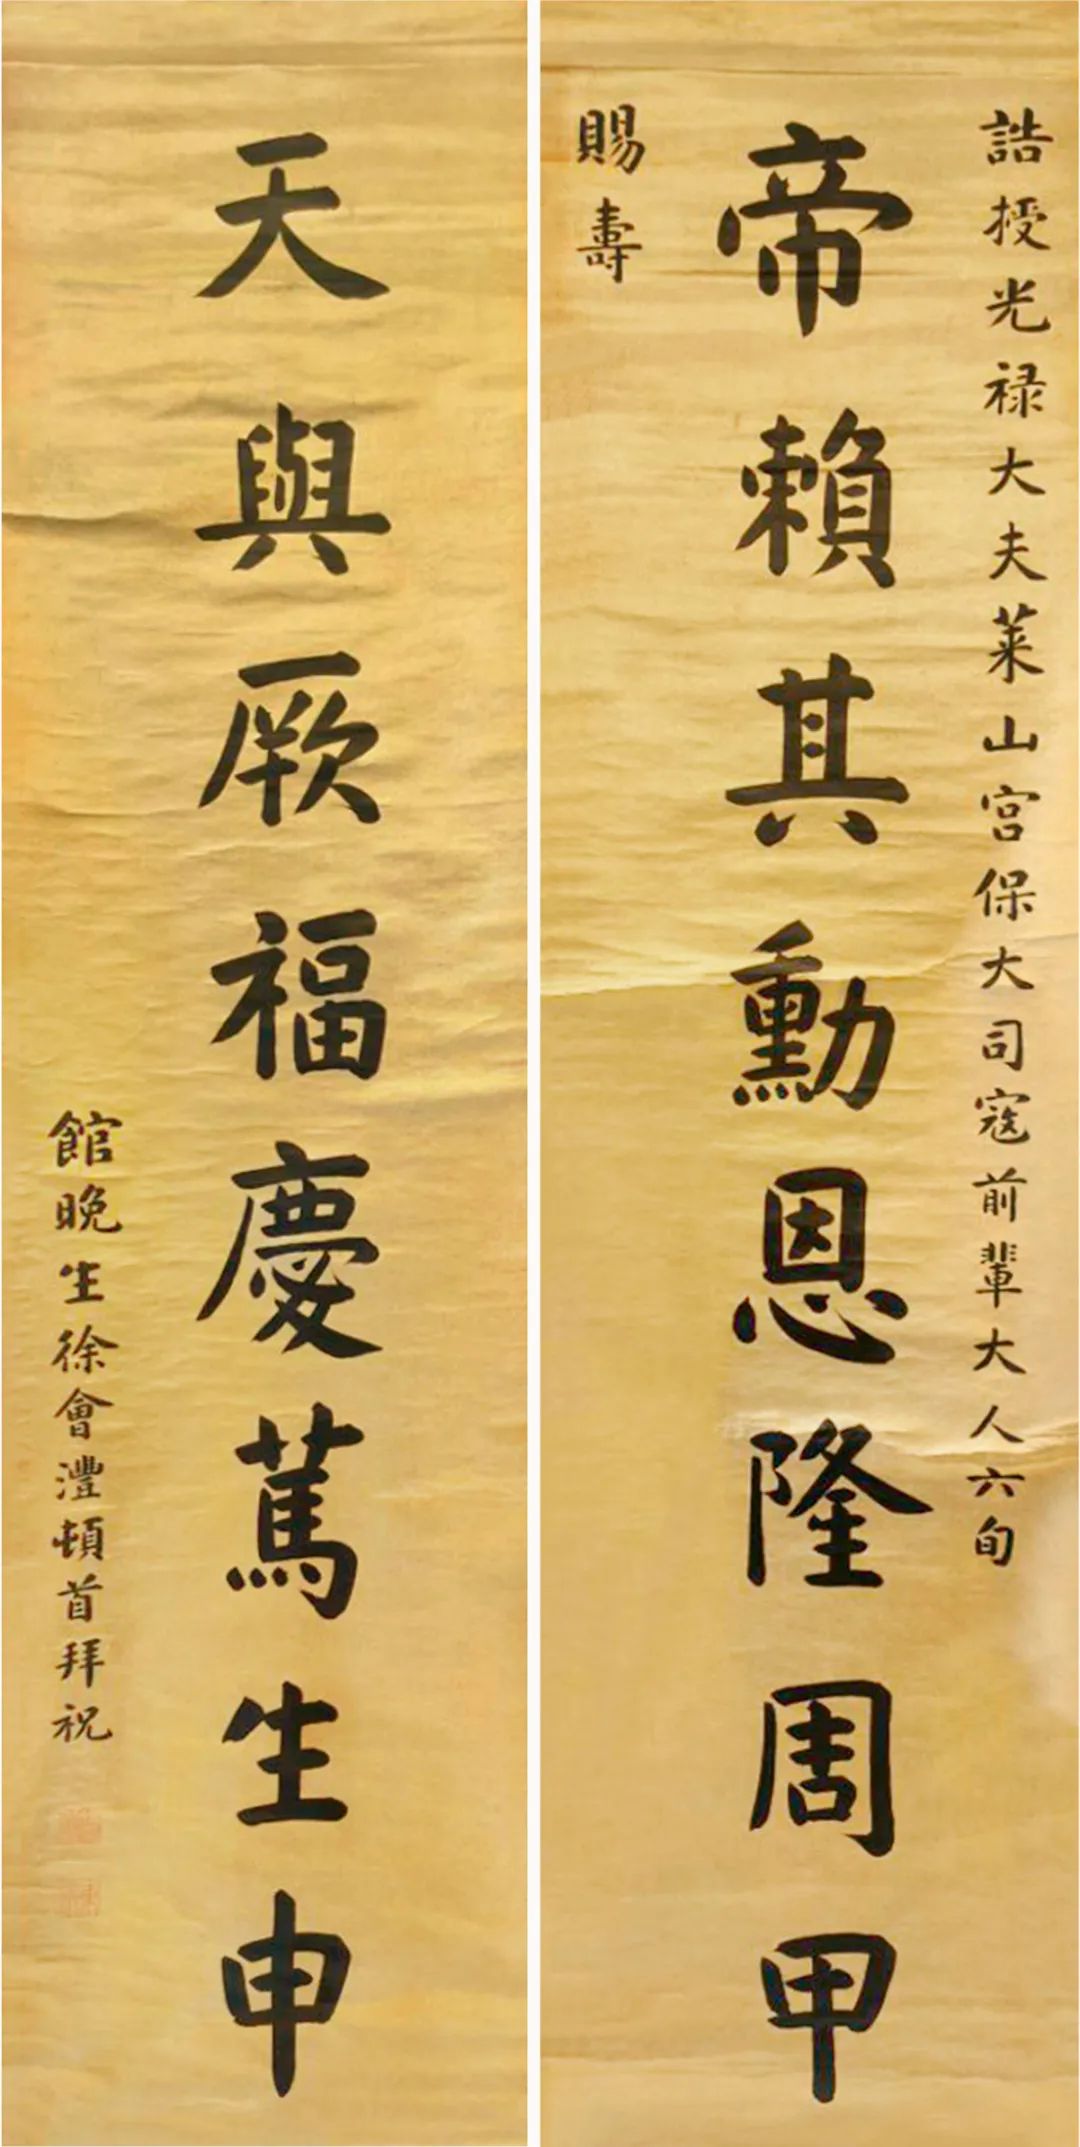 誥授光禄大夫萊山宮保大司寇前輩大人六旬
帝賴其勳恩隆周甲
賜壽
天與厥福慶篤生申
館晚生徐會灃頓首拜祝